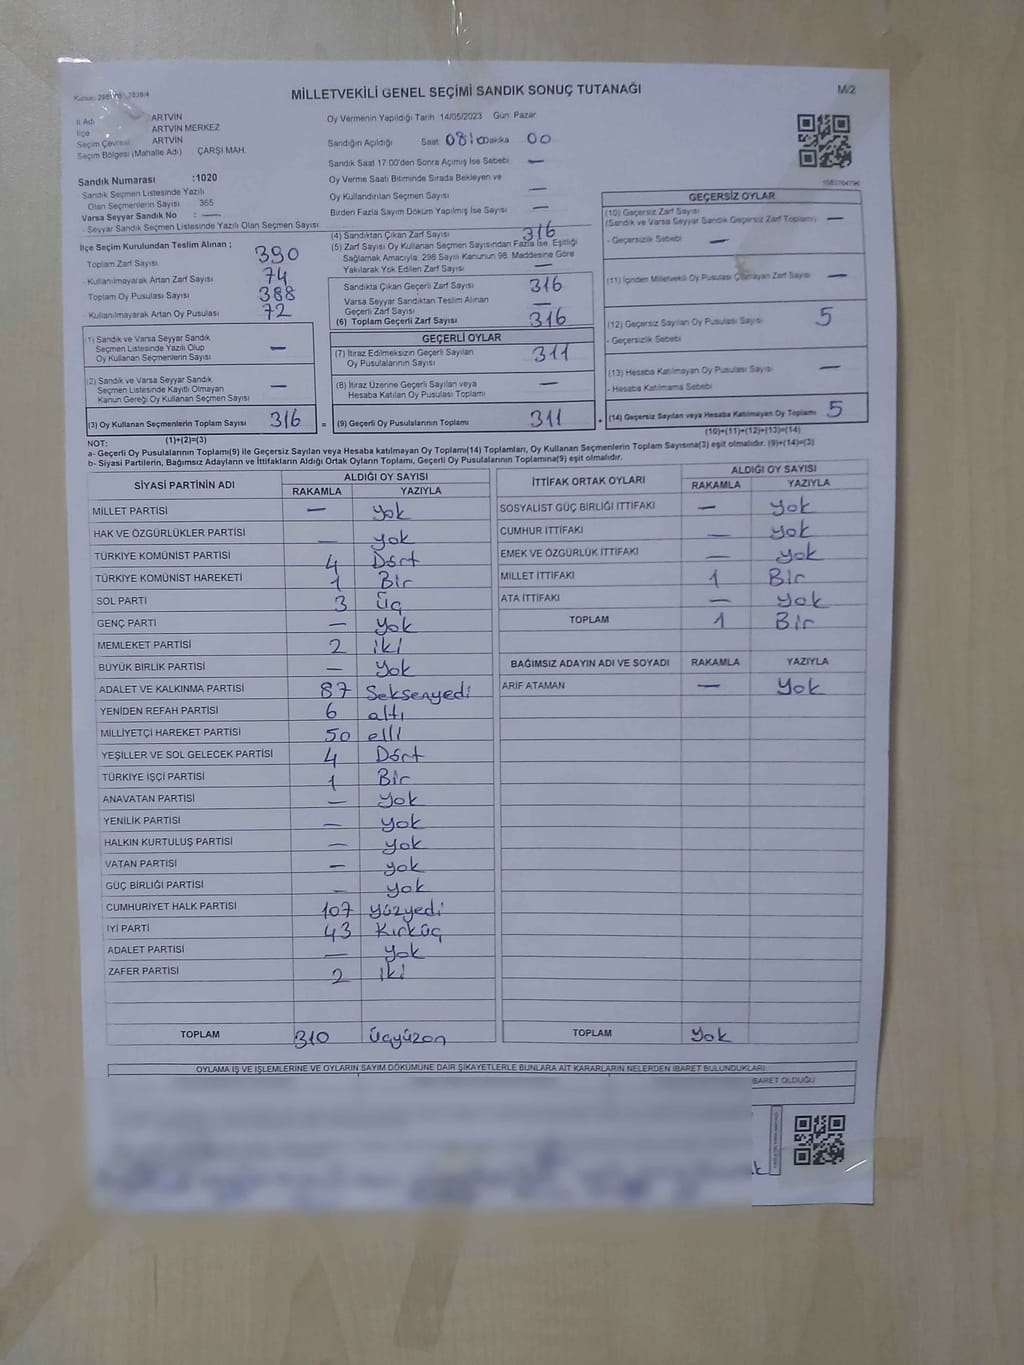 MİLLETVEKİLİ GENEL SEÇİMİ SANDIK SONUÇ TUTANAĞI
M/2
İl Adı ARTVİN
İlçe ARTVİN MERKEZ
Seçim Çevresi ARTVİN
Seçim Bölgesi (Mahalle Adı) ÇARŞI MAH.
Sandık Numarası :1020
Sandık Seçmen Listesinde Yazılı
Olan Seçmenlerin Sayısı 365
Varsa Seyyar Sandık No : —
- Seyyar Sandık Seçmen Listesinde Yazılı Olan Seçmen Sayısı
İlçe Seçim Kurulundan Teslim Alınan ;
Toplam Zarf Sayısı 390
- Kullanılmayarak Artan Zarf Sayısı 74
Toplam Oy Pusulası Sayısı 388
- Kullanılmayarak Artan Oy Pusulası 72
(1) Sandık ve Varsa Seyyar Sandık
Seçmen Listesinde Yazılı Olup
Oy Kullanan Seçmenlerin Sayısı —
(2) Sandık ve Varsa Seyyar Sandık
Seçmen Listesinde Kayıtlı Olmayan
Kanun Gereği Oy Kullanan Seçmen Sayısı —
(3) Oy Kullanan Seçmenlerin Toplam Sayısı 316
(1)+(2)=(3)
Oy Vermenin Yapıldığı Tarih 14/05/2023 Gün Pazar
Sandığın Açıldığı Saat 08:00 Dakika 00
Sandık Saat 17:00'den Sonra Açımış İse Sebebi —
Oy Verme Saati Bitiminde Sırada Bekleyen ve
Oy Kullandırılan Seçmen Sayısı —
Birden Fazla Sayım Döküm Yapılmış İse Sayısı —
(4) Sandıktan Çıkan Zarf Sayısı 316
(5) Zarf Sayısı Oy Kullanan Seçmen Sayısından Fazla İse, Eşitliği
Sağlamak Amacıyla, 298 Sayılı Kanunun 98. Maddesine Göre
Yakılarak Yok Edilen Zarf Sayısı —
Sandıkta Çıkan Geçerli Zarf Sayısı 316
Varsa Seyyar Sandıktan Teslim Alınan
Geçerli Zarf Sayısı —
(6) Toplam Geçerli Zarf Sayısı 316
GEÇERLİ OYLAR
(7) İtiraz Edilmeksizin Geçerli Sayılan
Oy Pusulalarının Sayısı 311
(8) İtiraz Üzerine Geçerli Sayılan veya
Hesaba Katılan Oy Pusulası Toplamı —
= (9) Geçerli Oy Pusulalarının Toplamı 311 +
GEÇERSİZ OYLAR
(10) Geçersiz Zarf Sayısı
(Sandık ve Varsa Seyyar Sandık Geçersiz Zarf Toplamı) —
- Geçersizlik Sebebi —
(11) İçinden Milletvekili Oy Pusulası Çıkmayan Zarf Sayısı —
(12) Geçersiz Sayılan Oy Pusulası Sayısı 5
- Geçersizlik Sebebi
(13) Hesaba Katılmayan Oy Pusulası Sayısı —
- Hesaba Katılmama Sebebi
(14) Geçersiz Sayılan veya Hesaba Katılmayan Oy Toplamı 5
(10)+(11)+(12)+(13)=(14)
NOT:
a- Geçerli Oy Pusulasının Toplamı(9) ile Geçersiz Sayılan veya Hesaba katılmayan Oy Toplamı(14) Toplamları, Oy Kullanan Seçmenlerin Toplam Sayısına(3) eşit olmalıdır. (9)+(14)=(3)
b- Siyasi Partilerin, Bağımsız Adayların ve İttifakların Aldığı Ortak Oyların Toplamı, Geçerli Oy Pusulalarının Toplamına(9) eşit olmalıdır.
SİYASİ PARTİNİN ADI ALDIĞI OY SAYISI
RAKAMLA YAZIYLA
MİLLET PARTİSİ — yok
HAK VE ÖZGÜRLÜKLER PARTİSİ — yok
TÜRKİYE KOMÜNİST PARTİSİ 4 Dört
TÜRKİYE KOMÜNİST HAREKETİ 1 Bir
SOL PARTİ 3 üç
GENÇ PARTİ — yok
MEMLEKET PARTİSİ 2 iki
BÜYÜK BİRLİK PARTİSİ — yok
ADALET VE KALKINMA PARTİSİ 87 Seksenyedi
YENİDEN REFAH PARTİSİ 6 altı
MİLLİYETÇİ HAREKET PARTİSİ 50 elli
YEŞİLLER VE SOL GELECEK PARTİSİ 4 Dört
TÜRKİYE İŞÇİ PARTİSİ 1 Bir
ANAVATAN PARTİSİ — yok
YENİLİK PARTİSİ — yok
HALKIN KURTULUŞ PARTİSİ — yok
VATAN PARTİSİ — yok
GÜÇ BİRLİĞİ PARTİSİ — yok
CUMHURİYET HALK PARTİSİ 107 yüzyedi
İYİ PARTİ 43 Kırküç
ADALET PARTİSİ — yok
ZAFER PARTİSİ 2 iki
TOPLAM 310 üçyüzon
İTTİFAK ORTAK OYLARI ALDIĞI OY SAYISI
RAKAMLA YAZIYLA
SOSYALİST GÜÇ BİRLİĞİ İTTİFAKI — yok
CUMHUR İTTİFAKI — yok
EMEK VE ÖZGÜRLÜK İTTİFAKI — yok
MİLLET İTTİFAKI 1 Bir
ATA İTTİFAKI — yok
TOPLAM 1 Bir
BAĞIMSIZ ADAYIN ADI VE SOYADI RAKAMLA YAZIYLA
ARİF ATAMAN — Yok
TOPLAM Yok
OYLAMA İŞ VE İŞLEMLERİNE VE OYLARIN SAYIM DÖKÜMÜNE DAİR ŞİKAYETLERLE BUNLARA AİT KARARLARIN NELERDEN İBARET BULUNDUKLARI
BARET OLDUĞU